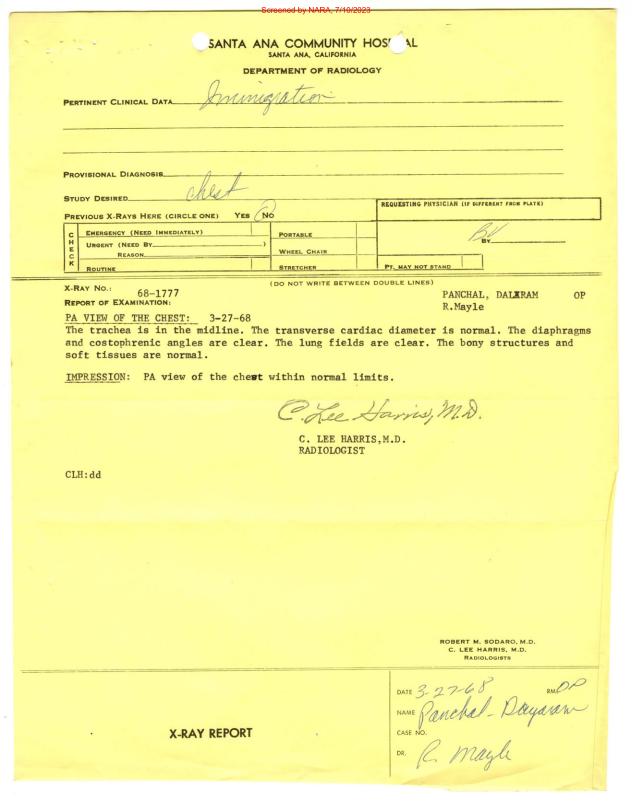 Screened by NARA, 7/10/2023
SANTA ANA COMMUNITY HOS AL
SANTA ANA, CALIFORNIA
DEPARTMENT OF RADIOLOGY
PERTINENT CLINICAL DATA Immigration
PROVISIONAL DIAGNOSIS
STUDY DESIRED chest
PREVIOUS X-RAYS HERE (CIRCLE ONE) YES NO
REQUESTING PHYSICIAN (IF DIFFERENT FROM PLATE)
CHECK
EMERGENCY (NEED IMMEDIATELY) PORTABLE
URGENT (NEED BY ) BY
REASON WHEEL CHAIR
ROUTINE STRETCHER PT. MAY NOT STAND
(DO NOT WRITE BETWEEN DOUBLE LINES)
X-RAY NO.: 68-1777 PANCHAL, DALXRAM OP
REPORT OF EXAMINATION: R.Mayle
PA VIEW OF THE CHEST: 3-27-68
The trachea is in the midline. The transverse cardiac diameter is normal. The diaphragms
and costophrenic angles are clear. The lung fields are clear. The bony structures and
soft tissues are normal.
IMPRESSION: PA view of the chest within normal limits.
C. Lee Harris, M.D.
C. LEE HARRIS,M.D.
RADIOLOGIST
CLH:dd
ROBERT M. SODARO, M.D.
C. LEE HARRIS, M.D.
RADIOLOGISTS
DATE 3-27-68 RM. OP
NAME Panchal - Dayaram
CASE NO.
X-RAY REPORT
DR. R. Mayle